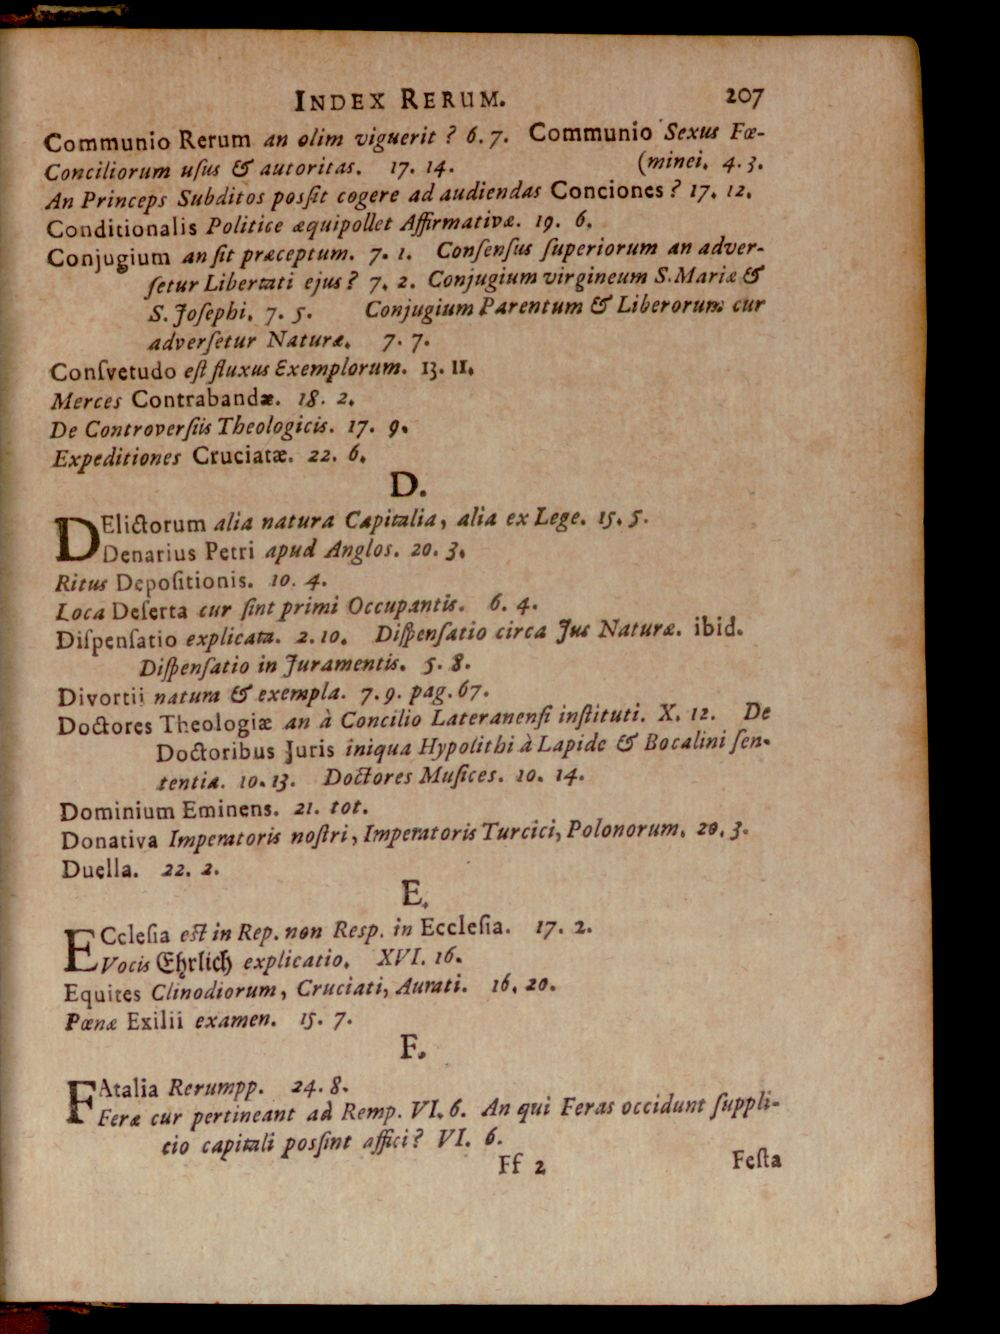 INDEX RERUM. 207
Communio Rerum an olim viguerit ? 6. 7. Communio Sexus Fœ-
Conciliorum uſus & autoritas. 17. 14. (minei. 4. 3.
An Princeps Subditos poſſit cogere ad audiendas Conciones ? 17. 12.
Conditionalis Politice æquipollet Affirmativæ. 19. 6.
Conjugium an ſit præceptum. 7. 1. Conſenſus ſuperiorum an adver-
ſetur Libertati ejus ? 7. 2. Conjugium virgineum S. Mariæ &
S. Joſephi. 7. 5. Conjugium Parentum & Liberorum cur
adverſetur Naturæ. 7. 7.
Conſvetudo eſt fluxus Exemplorum. 13. 11.
Merces Contrabandæ. 18. 2.
De Controverſiis Theologicis. 17. 9.
Expeditiones Cruciatæ. 22. 6.
D.
DElictorum alia natura Capitalia, alia ex Lege. 15. 5.
Denarius Petri apud Anglos. 20. 3.
Ritus Depoſitionis. 10. 4.
Loca Deſerta cur ſint primi Occupantis. 6. 4.
Diſpenſatio explicata. 2. 10. Diſpenſatio circa Jus Naturæ. ibid.
Diſpenſatio in Juramentis. 5. 8.
Divortii natura & exempla. 7. 9. pag. 67.
Doctores Theologiæ an à Concilio Lateranenſi inſtituti. X. 12. De
Doctoribus Juris iniqua Hypolithi à Lapide & Bocalini ſen-
tentia. 10. 13. Doctores Muſices. 10. 14.
Dominium Eminens. 21. tot.
Donativa Imperatoris noſtri, Imperatoris Turcici, Polonorum. 20. 3.
Duella. 22. 2.
E.
ECcleſia eſt in Rep. non Resp. in Eccleſia. 17. 2.
Vocis Ehrlich explicatio. XVI. 16.
Equites Clinodiorum, Cruciati, Aurati. 16. 20.
Pœnæ Exilii examen. 15. 7.
F.
FAtalia Rerumpp. 24. 8.
Feræ cur pertineant ad Remp. VI. 6. An qui Feras occidunt ſuppli-
cio capitali poſſint affici ? VI. 6.
Ff 2 Feſta